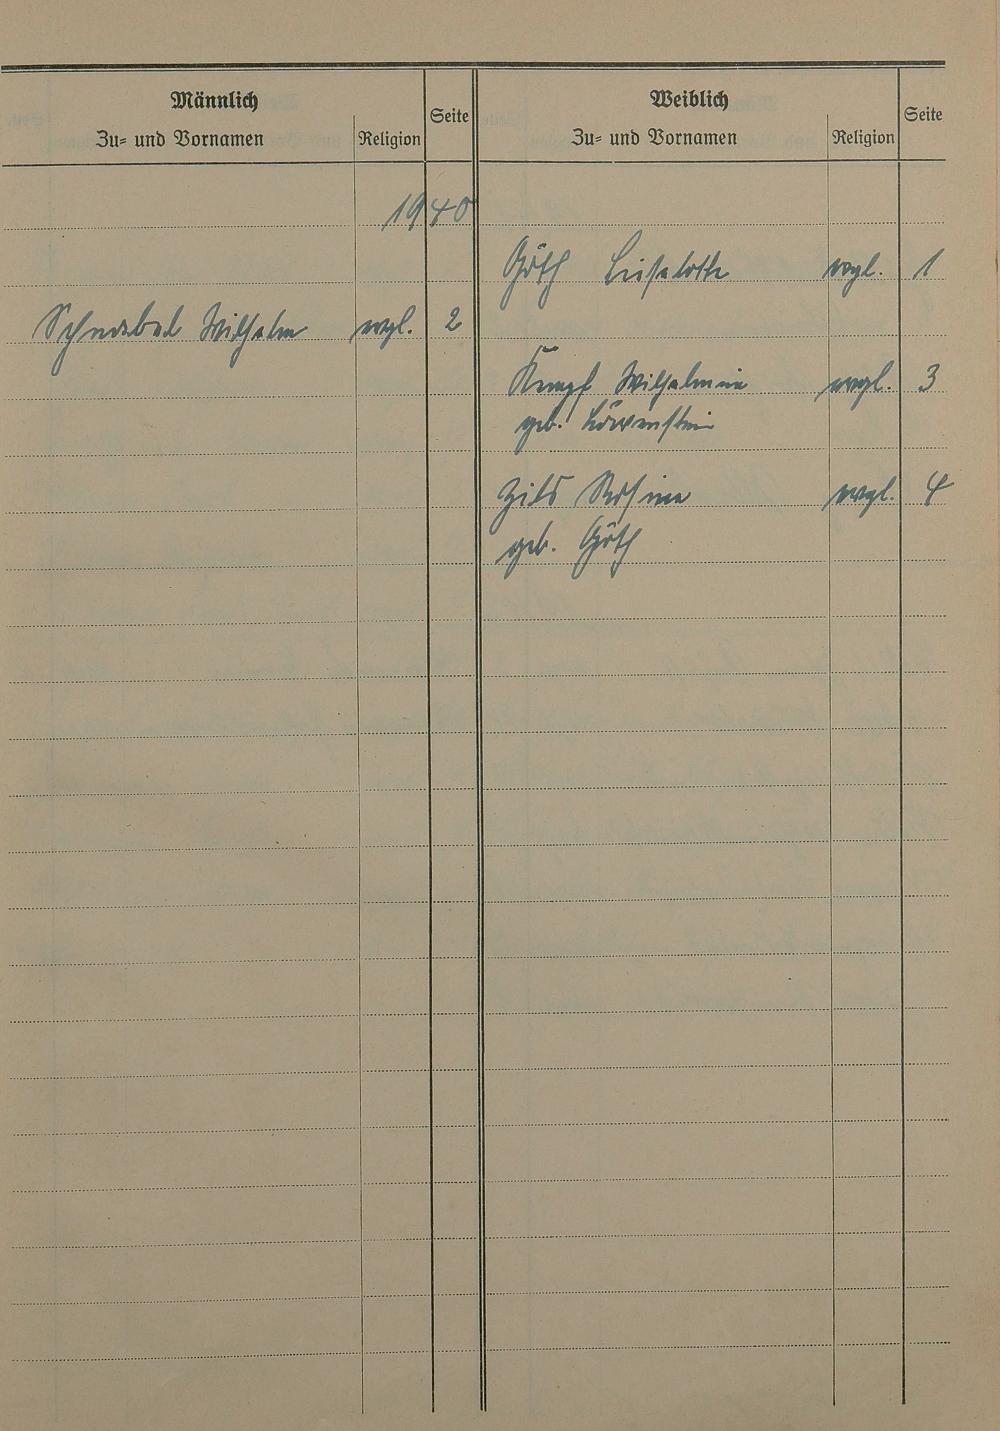 Männlich
Zu= und Vornamen
Religion
Seite
Weiblich
Zu= und Vornamen
Religion
Seite
1940
Göth Liselotte evgl. 1
Schnabel Wilhelm evgl. 2
Kempf Wilhelmine evgl. 3
geb. Löwenstein
Zils Rosina evgl. 4
geb. Göth